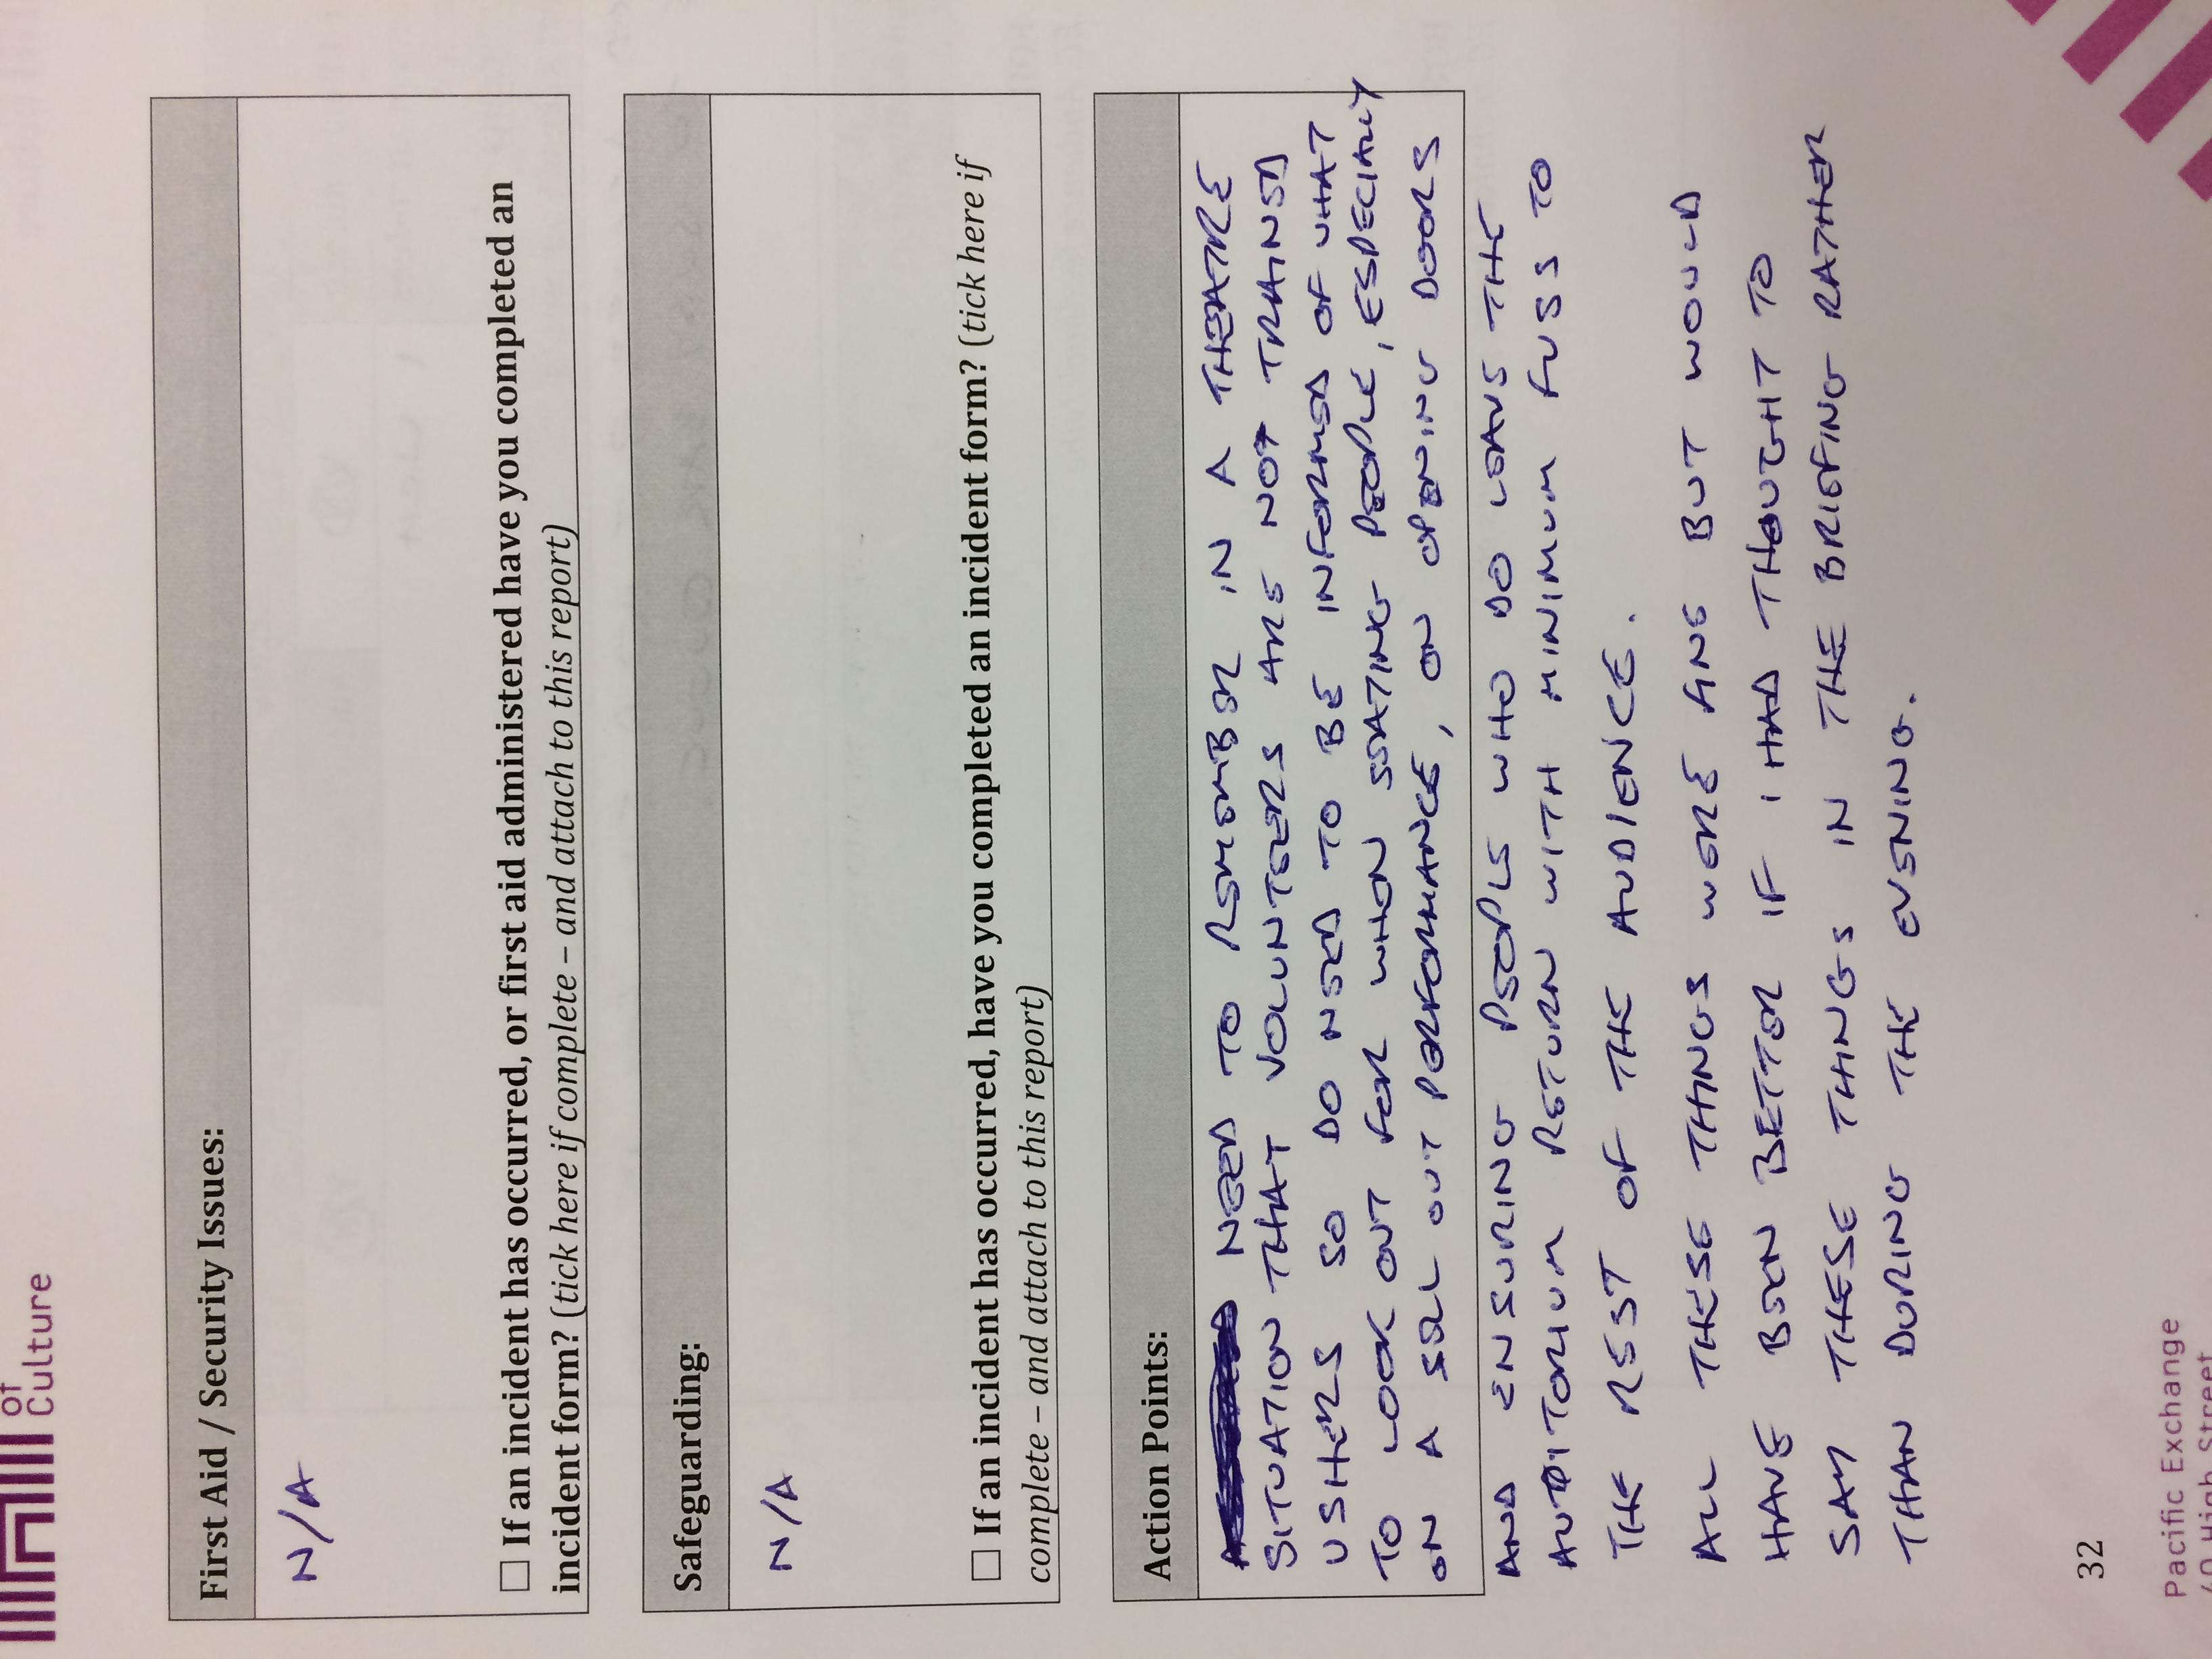 of
Culture
First Aid / Security Issues:
N/A
☐ If an incident has occurred, or first aid administered have you completed an
incident form? (tick here if complete – and attach to this report)
Safeguarding:
N/A
☐ If an incident has occurred, have you completed an incident form? (tick here if
complete – and attach to this report)
Action Points:
NEED TO REMEMBER IN A THEATRE
SITUATION THAT VOLUNTEERS ARE NOT TRAINED
USHERS SO DO NEED TO BE INFORMED OF WHAT
TO LOOK OUT FOR WHEN SEATING PEOPLE, ESPECIALLY
ON A SELL OUT PERFORMANCE, ON OPENING DOORS
AND ENSURING PEOPLE WHO DO LEAVE THE
AUDITORIUM RETURN WITH MINIMUM FUSS TO
THE REST OF THE AUDIENCE.
ALL THESE THINGS WERE ANE BUT WOULD
HAVE BEEN BETTER IF I HAD THOUGHT TO
SAY THESE THINGS IN THE BRIEFING RATHER
THAN DURING THE EVENING.
32
Pacific Exchange
40 High Street